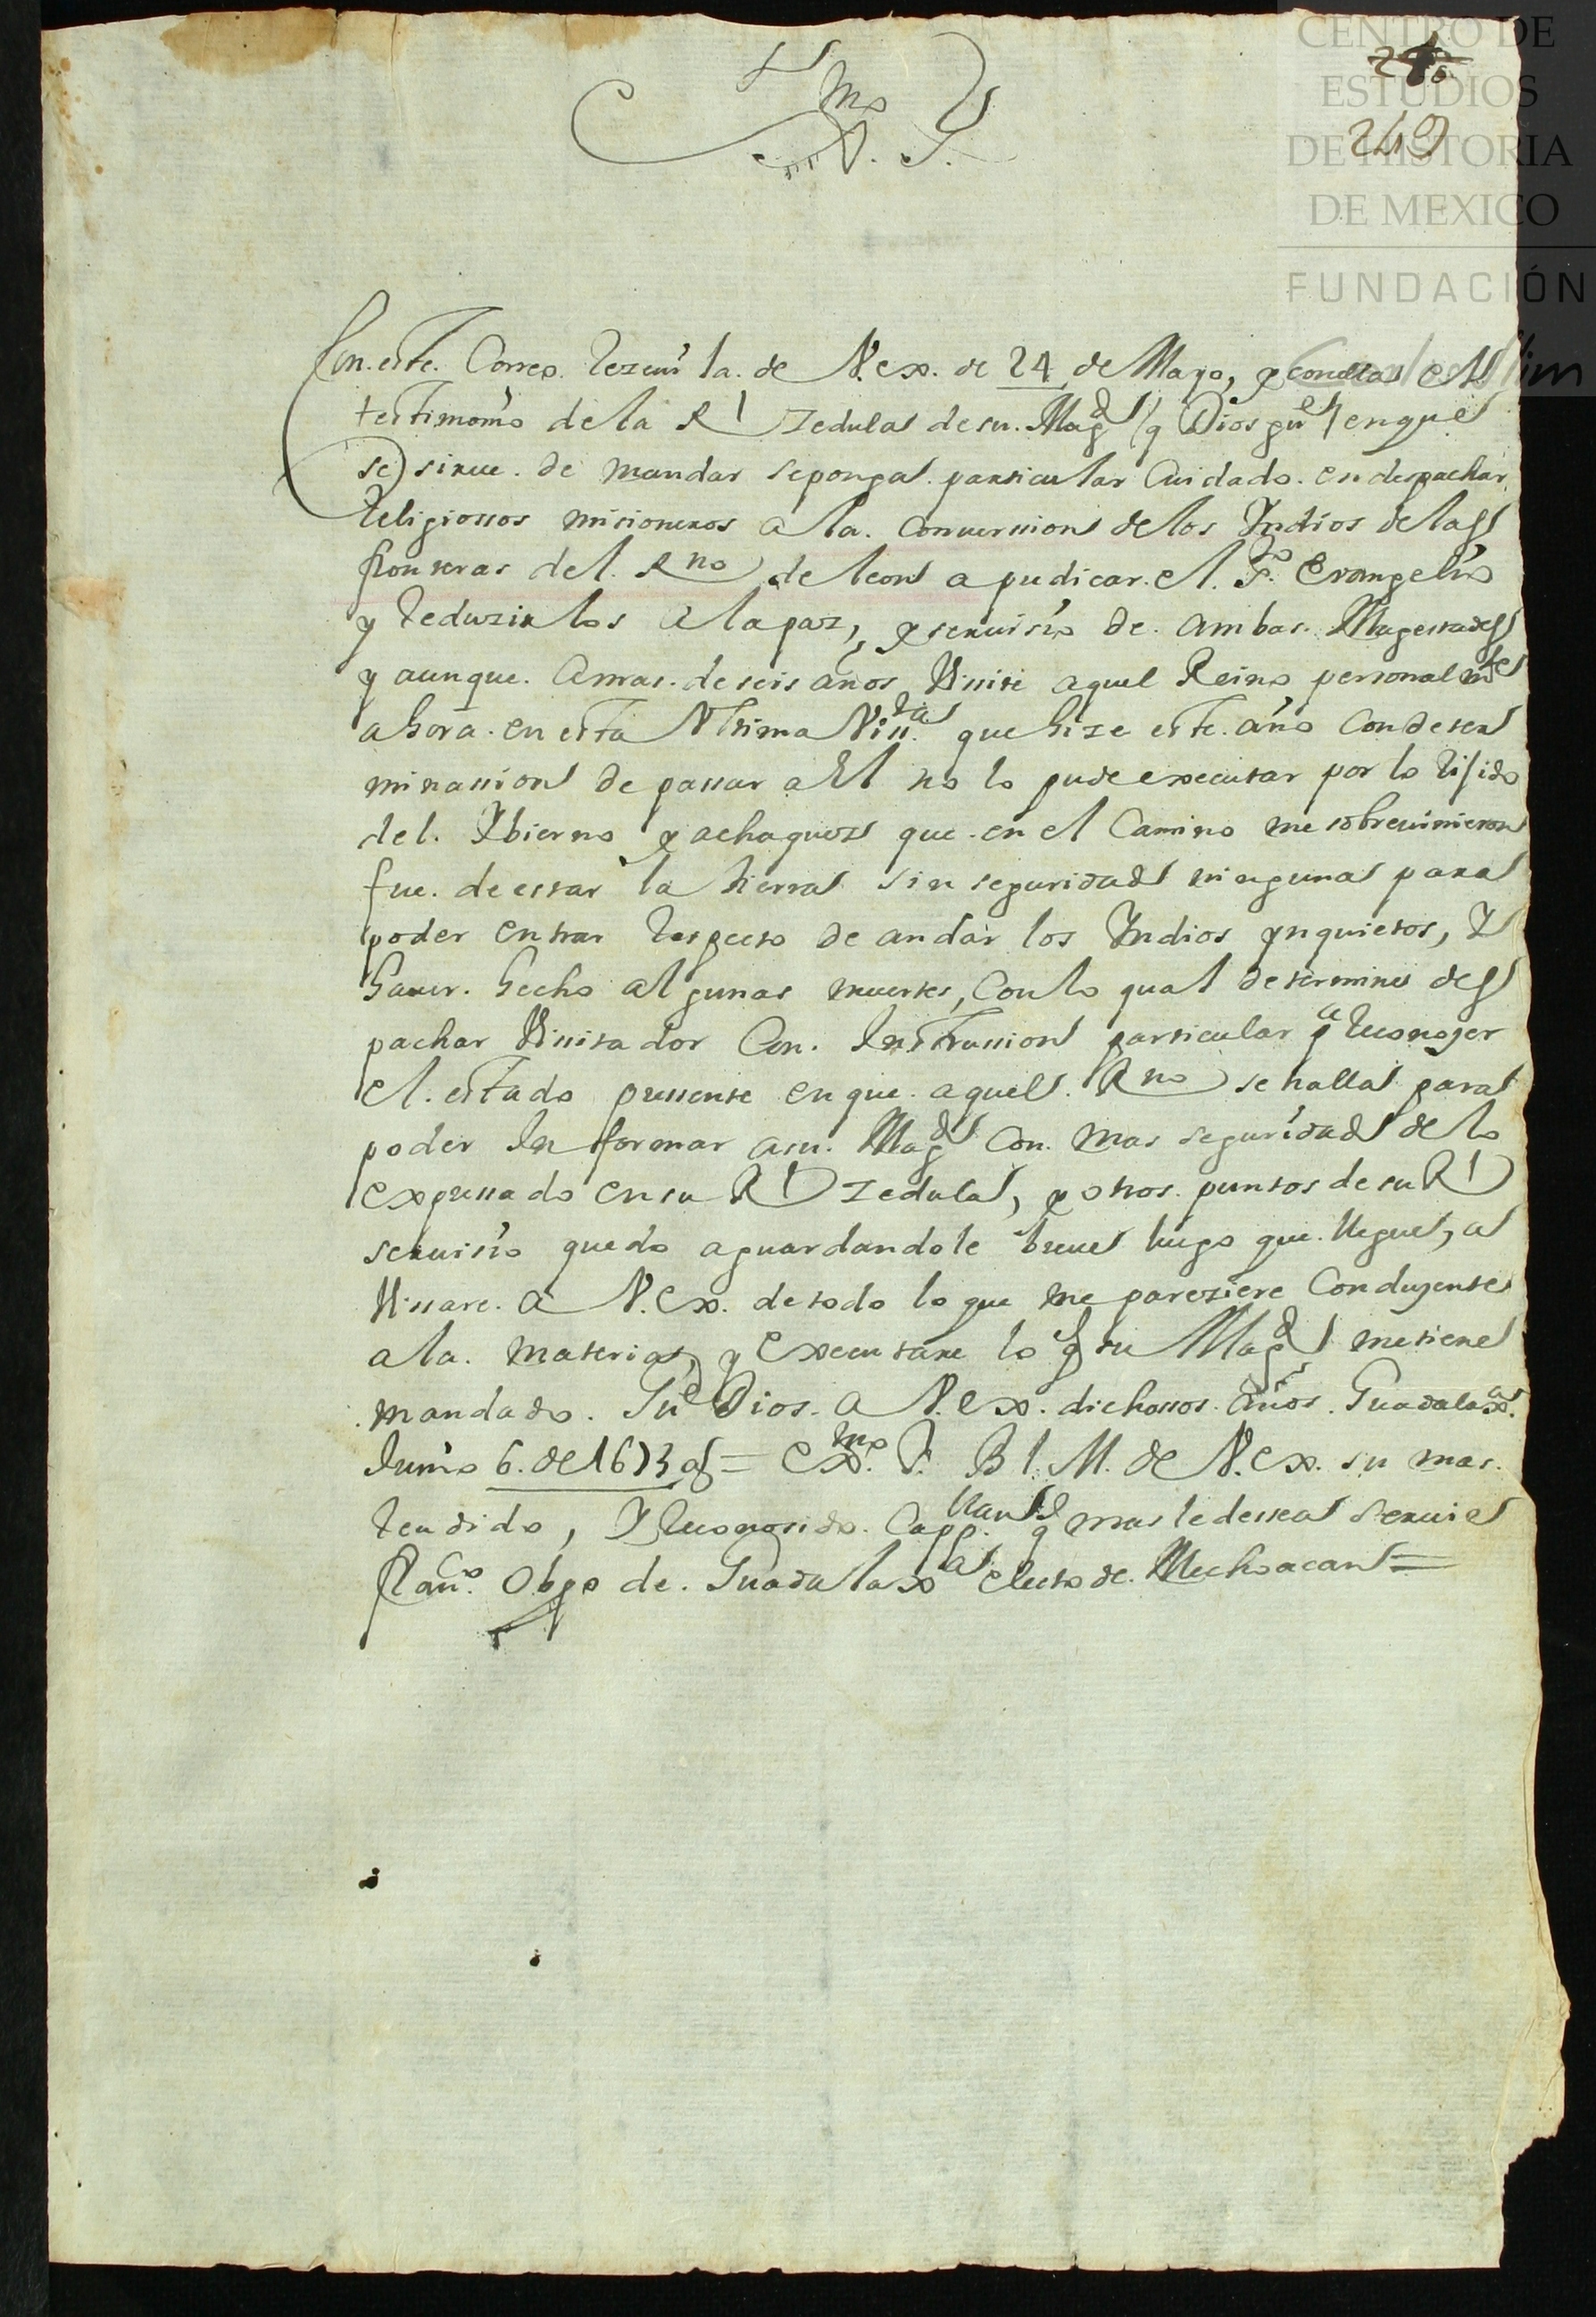 CENTRO DE
ESTUDIOS
DE HISTORIA
DE MEXICO
FUNDACIÓN
249
Exmo S.
Con este Correo rezeui la de V. ex. de 24 de Mayo, y con ella el
testimonio de la Rl zedula de su Magd (q Dios gue) en que
se sirue de mandar se ponga particular Cuidado en despachar
religiossos misioneros a la conuerssion de los Indios de las
fronteras del Rno de leon a predicar el Sto Evangelio
y reduzirlos a la paz, y seruisio de ambas Magestades
y aunque Atras de seis años Vissite aquel Reino personalmte
ahora en esta Vltima Vissta que hize este año con deter
minassion de passar a El no lo pude executar por lo rijido
del Ibierno y achaques que en el Camino me sobreuinieron
fue de estar la tierra sin seguridad ninguna para
poder entrar respecto de andar los Indios ynquietos, y
hauer hecho algunas muertes, Con lo qual determine des
pachar Vissitador Con Instrussion particular pa reconoser
el estado pressente en que aquel Rno se halla para
poder Informar a su Magd Con mas seguridad de lo
expressado en su Rl zedula, y otros puntos de su Rl
seruisio quedo aguardandole breue luego que llegue, a
Vissare a V. ex. de todo lo que me pareziere Conduzente
a la materia, y executare lo q su Magd me tiene
mandado. Gue Dios a V. ex. dichossos años. Guadalaxa
Iunio 6. de 1673 as = Exmo S. B l. M. de V. ex. su mas
rendido, y reconosido Cappllan q mas le dessea seruir
Franco Obpo de Guadalaxa electo de Mechoacan =